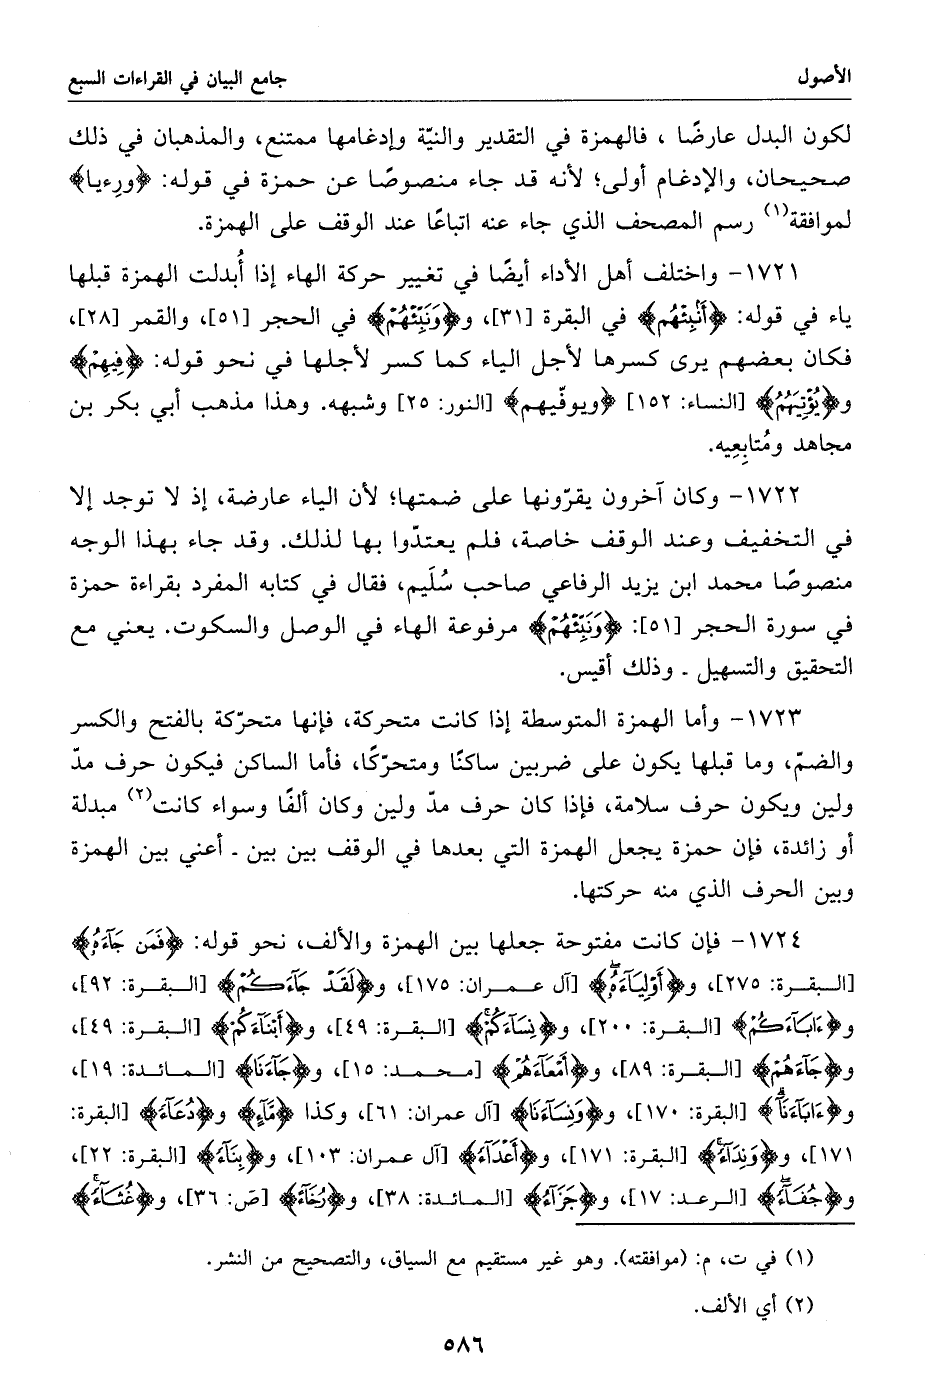 الأصول
جامع البيان في القراءات السبع
لكون البدل عارضًا ، فالهمزة في التقدير والنيّة وإدغامها ممتنع، والمذهبان في ذلك
صحيحان، والإدغام أولى؛ لأنه قد جاء منصوصًا عن حمزة في قوله: ﴿ورءيا﴾
لموافقة(١) رسم المصحف الذي جاء عنه اتباعًا عند الوقف على الهمزة.
١٧٢١- واختلف أهل الأداء أيضًا في تغيير حركة الهاء إذا أُبدلت الهمزة قبلها
ياء في قوله: ﴿أَنۢبِئْهُم﴾ في البقرة [٣١]، و﴿وَنَبِّئْهُمْ﴾ في الحجر [٥١]، والقمر [٢٨]،
فكان بعضهم يرى كسرها لأجل الياء كما كسر لأجلها في نحو قوله: ﴿فِيهِمْ﴾
و﴿يُؤْتِيهِمُ﴾ [النساء: ١٥٢] ﴿ويوفّيهم﴾ [النور: ٢٥] وشبهه. وهذا مذهب أبي بكر بن
مجاهد ومُتابِعِيه.
١٧٢٢- وكان آخرون يقرّونها على ضمتها؛ لأن الياء عارضة، إذ لا توجد إلا
في التخفيف وعند الوقف خاصة، فلم يعتدّوا بها لذلك. وقد جاء بهذا الوجه
منصوصًا محمد ابن يزيد الرفاعي صاحب سُلَيم، فقال في كتابه المفرد بقراءة حمزة
في سورة الحجر [٥١]: ﴿وَنَبِّئْهُمْ﴾ مرفوعة الهاء في الوصل والسكوت. يعني مع
التحقيق والتسهيل ـ وذلك أقيس.
١٧٢٣- وأما الهمزة المتوسطة إذا كانت متحركة، فإنها متحرّكة بالفتح والكسر
والضمّ، وما قبلها يكون على ضربين ساكنًا ومتحرّكًا، فأما الساكن فيكون حرف مدّ
ولين ويكون حرف سلامة، فإذا كان حرف مدّ ولين وكان ألفًا وسواء كانت(٢) مبدلة
أو زائدة، فإن حمزة يجعل الهمزة التي بعدها في الوقف بين بين ـ أعني بين الهمزة
وبين الحرف الذي منه حركتها.
١٧٢٤- فإن كانت مفتوحة جعلها بين الهمزة والألف، نحو قوله: ﴿فَمَن جَآءَهُۥ﴾
[البقرة: ٢٧٥]، و﴿أَوْلِيَآءَهُۥ﴾ [آل عمران: ١٧٥]، و﴿لَقَدْ جَآءَكُمْ﴾ [البقرة: ٩٢]،
و﴿ءَابَآءَكُمْ﴾ [البقرة: ٢٠٠]، و﴿نِسَآءَكُمْ﴾ [البقرة: ٤٩]، و﴿أَبْنَآءَكُمْ﴾ [البقرة: ٤٩]،
و﴿جَآءَهُمْ﴾ [البقرة: ٨٩]، و﴿أَمْعَآءَهُمْ﴾ [محمد: ١٥]، و﴿جَآءَنَا﴾ [المائدة: ١٩]،
و﴿ءَابَآءَنَآ﴾ [البقرة: ١٧٠]، و﴿وَنِسَآءَنَا﴾ [آل عمران: ٦١]، وكذا ﴿مَآءً﴾ و﴿دُعَآءً﴾ [البقرة:
١٧١]، و﴿وَنِدَآءً﴾ [البقرة: ١٧١]، و﴿أَعْدَآءً﴾ [آل عمران: ١٠٣]، و﴿بِنَآءً﴾ [البقرة: ٢٢]،
و﴿جُفَآءً﴾ [الرعد: ١٧]، و﴿جَزَآءً﴾ [المائدة: ٣٨]، و﴿رُخَآءً﴾ [صَ: ٣٦]، و﴿غُثَآءً﴾
(١) في ت، م: (موافقته). وهو غير مستقيم مع السياق، والتصحيح من النشر.
(٢) أي الألف.
٥٨٦